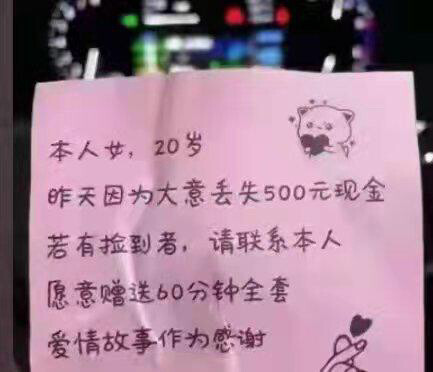 本人女，20岁
昨天因为大意丢失500元现金
若有捡到者，请联系本人
愿意赠送60分钟全套
爱情故事作为感谢